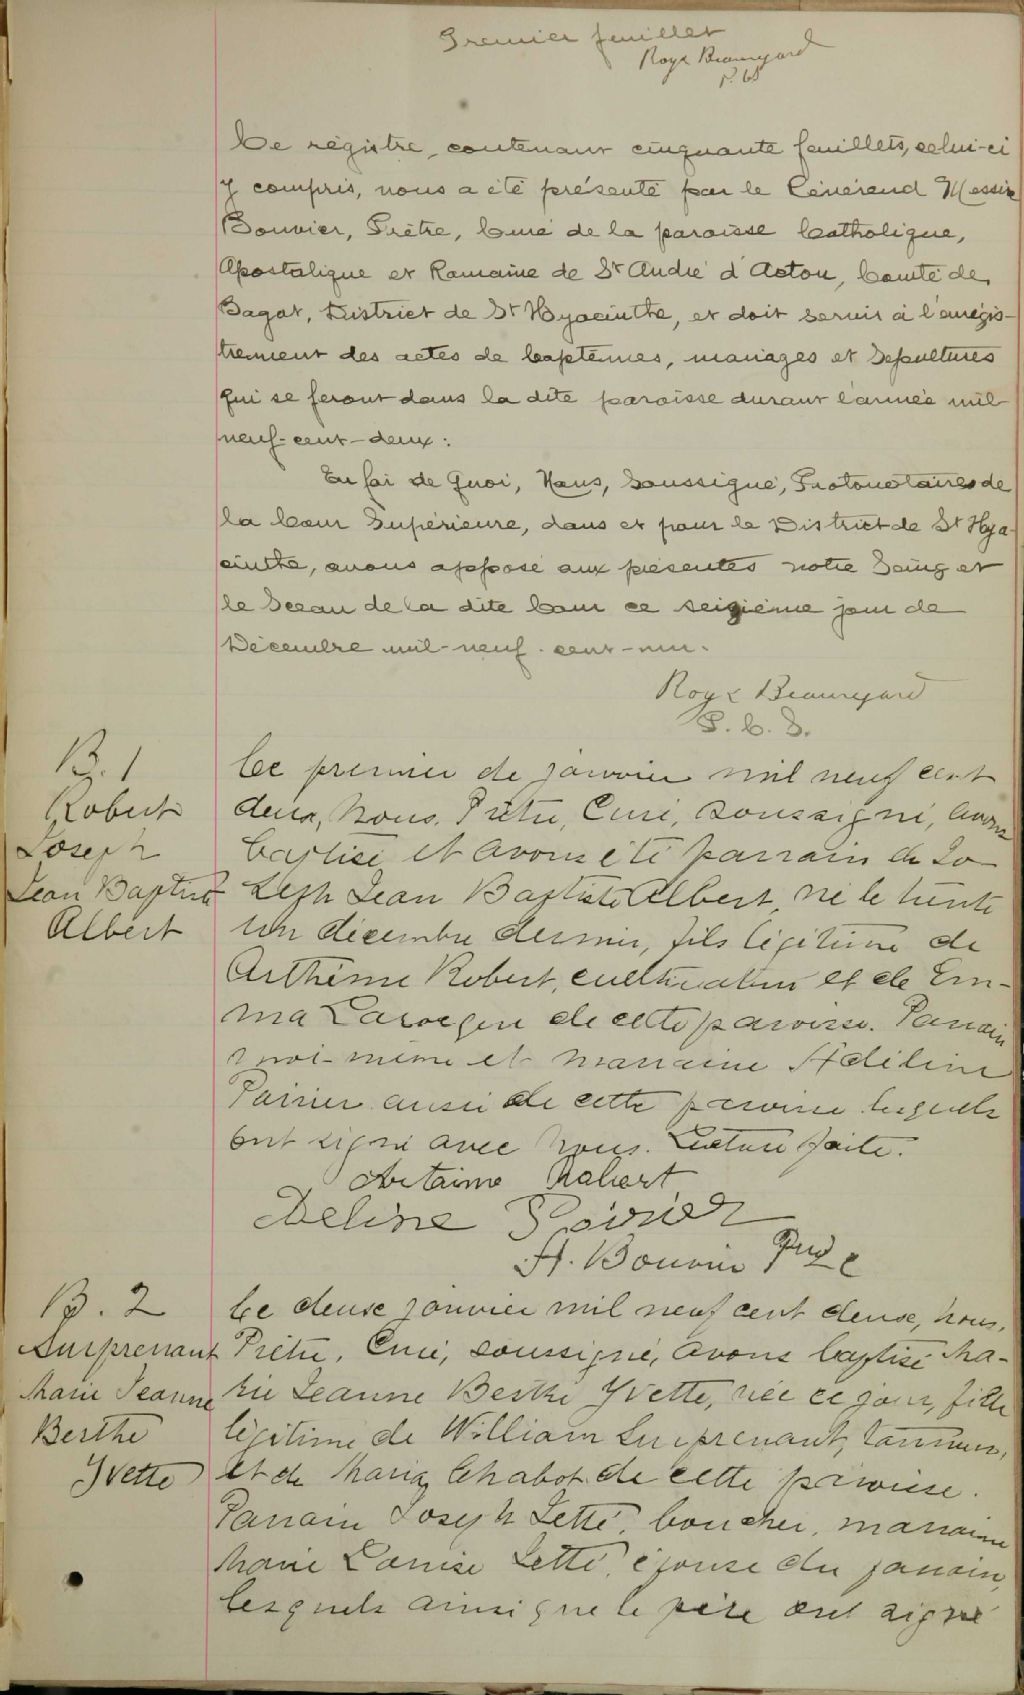 Premier feuillet
Roy & Beauregard
P.C.S
Ce régistre, contenant cinquante feuillets, celui-ci
y compris, nous a été présenté par le Révérend Messire
Bouvier, Prêtre, Curé de la paroisse Catholique,
Apostolique et Romaine de St André d'Acton, Comté de
Bagot, District de St Hyacinthe, et doit servir à l'enrégis-
trement des actes de baptêmes, mariages et Sépultures
qui se feront dans la dite paroisse durant l'année mil-
neuf-cent-deux:
En foi de Quoi, Nous, Soussigné, Protonotaires de
la Cour Supérieure, dans et pour le District de St Hya-
cinthe, avons apposé aux présentes notre Seing et
le Sceau de la dite Cour ce seizième jour de
Décembre mil-neuf-cent-un.
Roy & Beauregard
P.C.S.
B. 1
Robert
Joseph
Jean Baptiste
Albert
Le premier de janvier mil neuf cent
deux, Nous, Prêtre, Curé, soussigné, avons
baptisé et avons été parrain de Jo-
seph Jean Baptiste Albert, né le trente
un décembre dernier, fils légitime de
Arthème Robert, cultivateur et de Em-
ma Larocque de cette paroisse. Parrain
moi-même et marraine Adéline
Poirier aussi de cette paroisse lesquels
ont signé avec nous. Lecture faite.
Artaime Robert
Deline Poirier
A. Bouvier Ptre C
B. 2
Surprenant
Marie Jeanne
Berthe
Yvette
Le deux janvier mil neuf cent deux, Nous,
Prêtre, Curé, soussigné, avons baptisé Ma-
rie Jeanne Berthe Yvette, née ce jour, fille
légitime de William Surprenant, tanneur,
et de Maria Chabot de cette paroisse.
Parrain Joseph Jetté, boucher, marraine
Marie Louise Jetté, épouse du parrain,
lesquels ainsi que le père ont signé